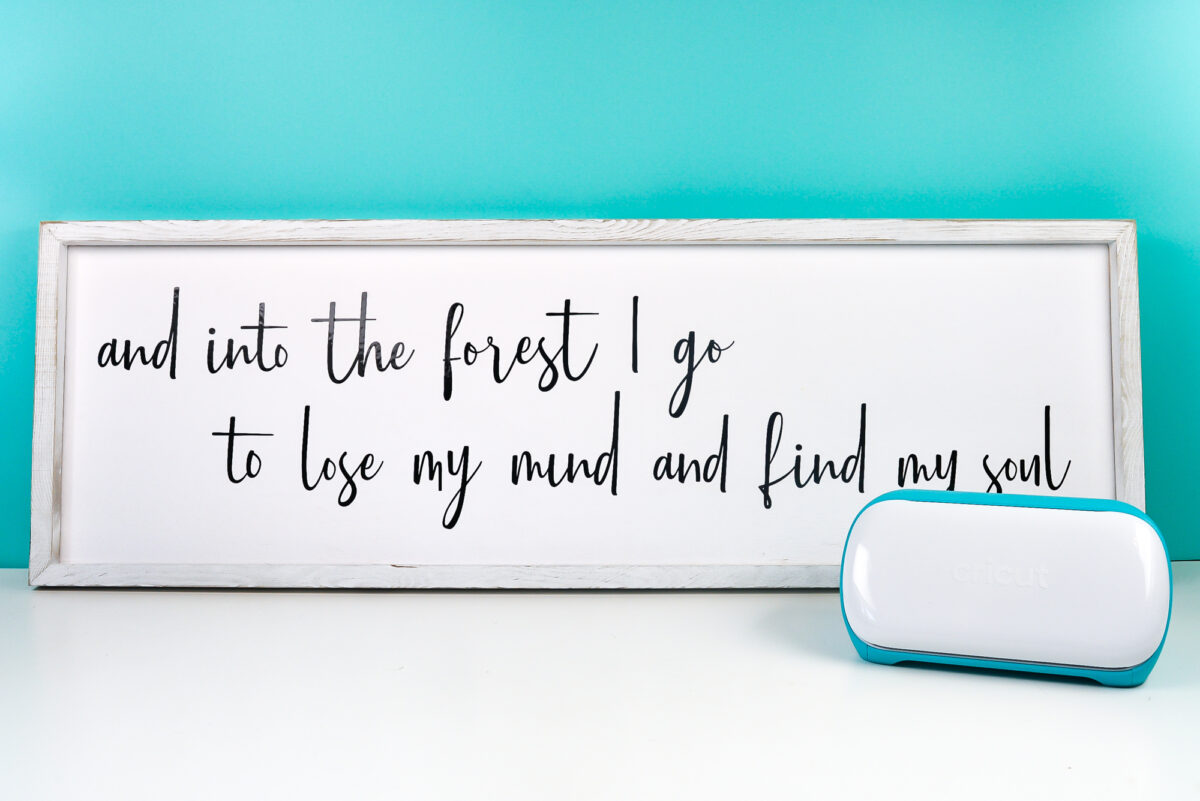 and into the forest I go
to lose my mind and find my soul
cricut